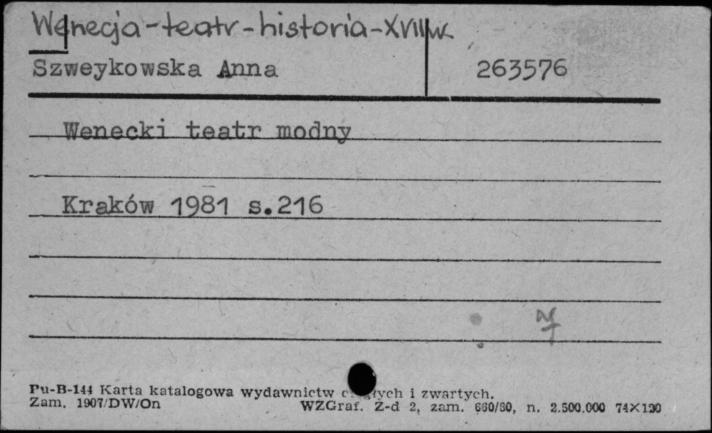 Wenecja-teatr-historia-XVIIIw.
Szweykowska Anna 263576
Wenecki teatr modny
Kraków 1981 s.216
Pu-B-144 Karta katalogowa wydawnictw i zwartych.
Zam. 1907/DW/On WZGraf. Z-d 2, zam. 660/80, n. 2.500.000 74X120